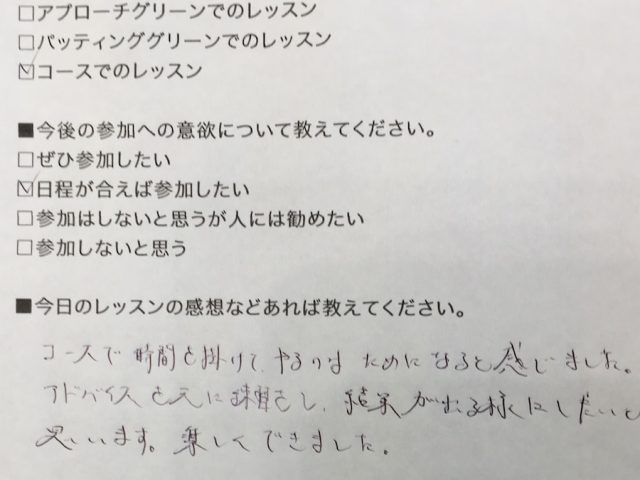 □アプローチグリーンでのレッスン
□パッティンググリーンでのレッスン
☑コースでのレッスン
■今後の参加への意欲について教えてください。
□ぜひ参加したい
☑日程が合えば参加したい
□参加はしないと思うが人には勧めたい
□参加しないと思う
■今日のレッスンの感想などあれば教えてください。
コースで時間を掛けて、やるのはためになると感じました。
アドバイスを元に練習をし、結果が出る様にしたいと
思います。楽しくできました。